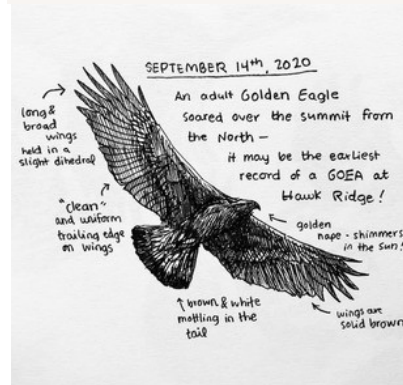 SEPTEMBER 14th, 2020
An adult Golden Eagle
soared over the summit from
the North —
it may be the earliest
record of a GOEA at
Hawk Ridge!
long &
broad
wings
held in a
slight dihedral
"clean"
and uniform
trailing edge
on wings
golden
nape - shimmers
in the sun!
brown & white
mottling in the
tail
wings are
solid brown